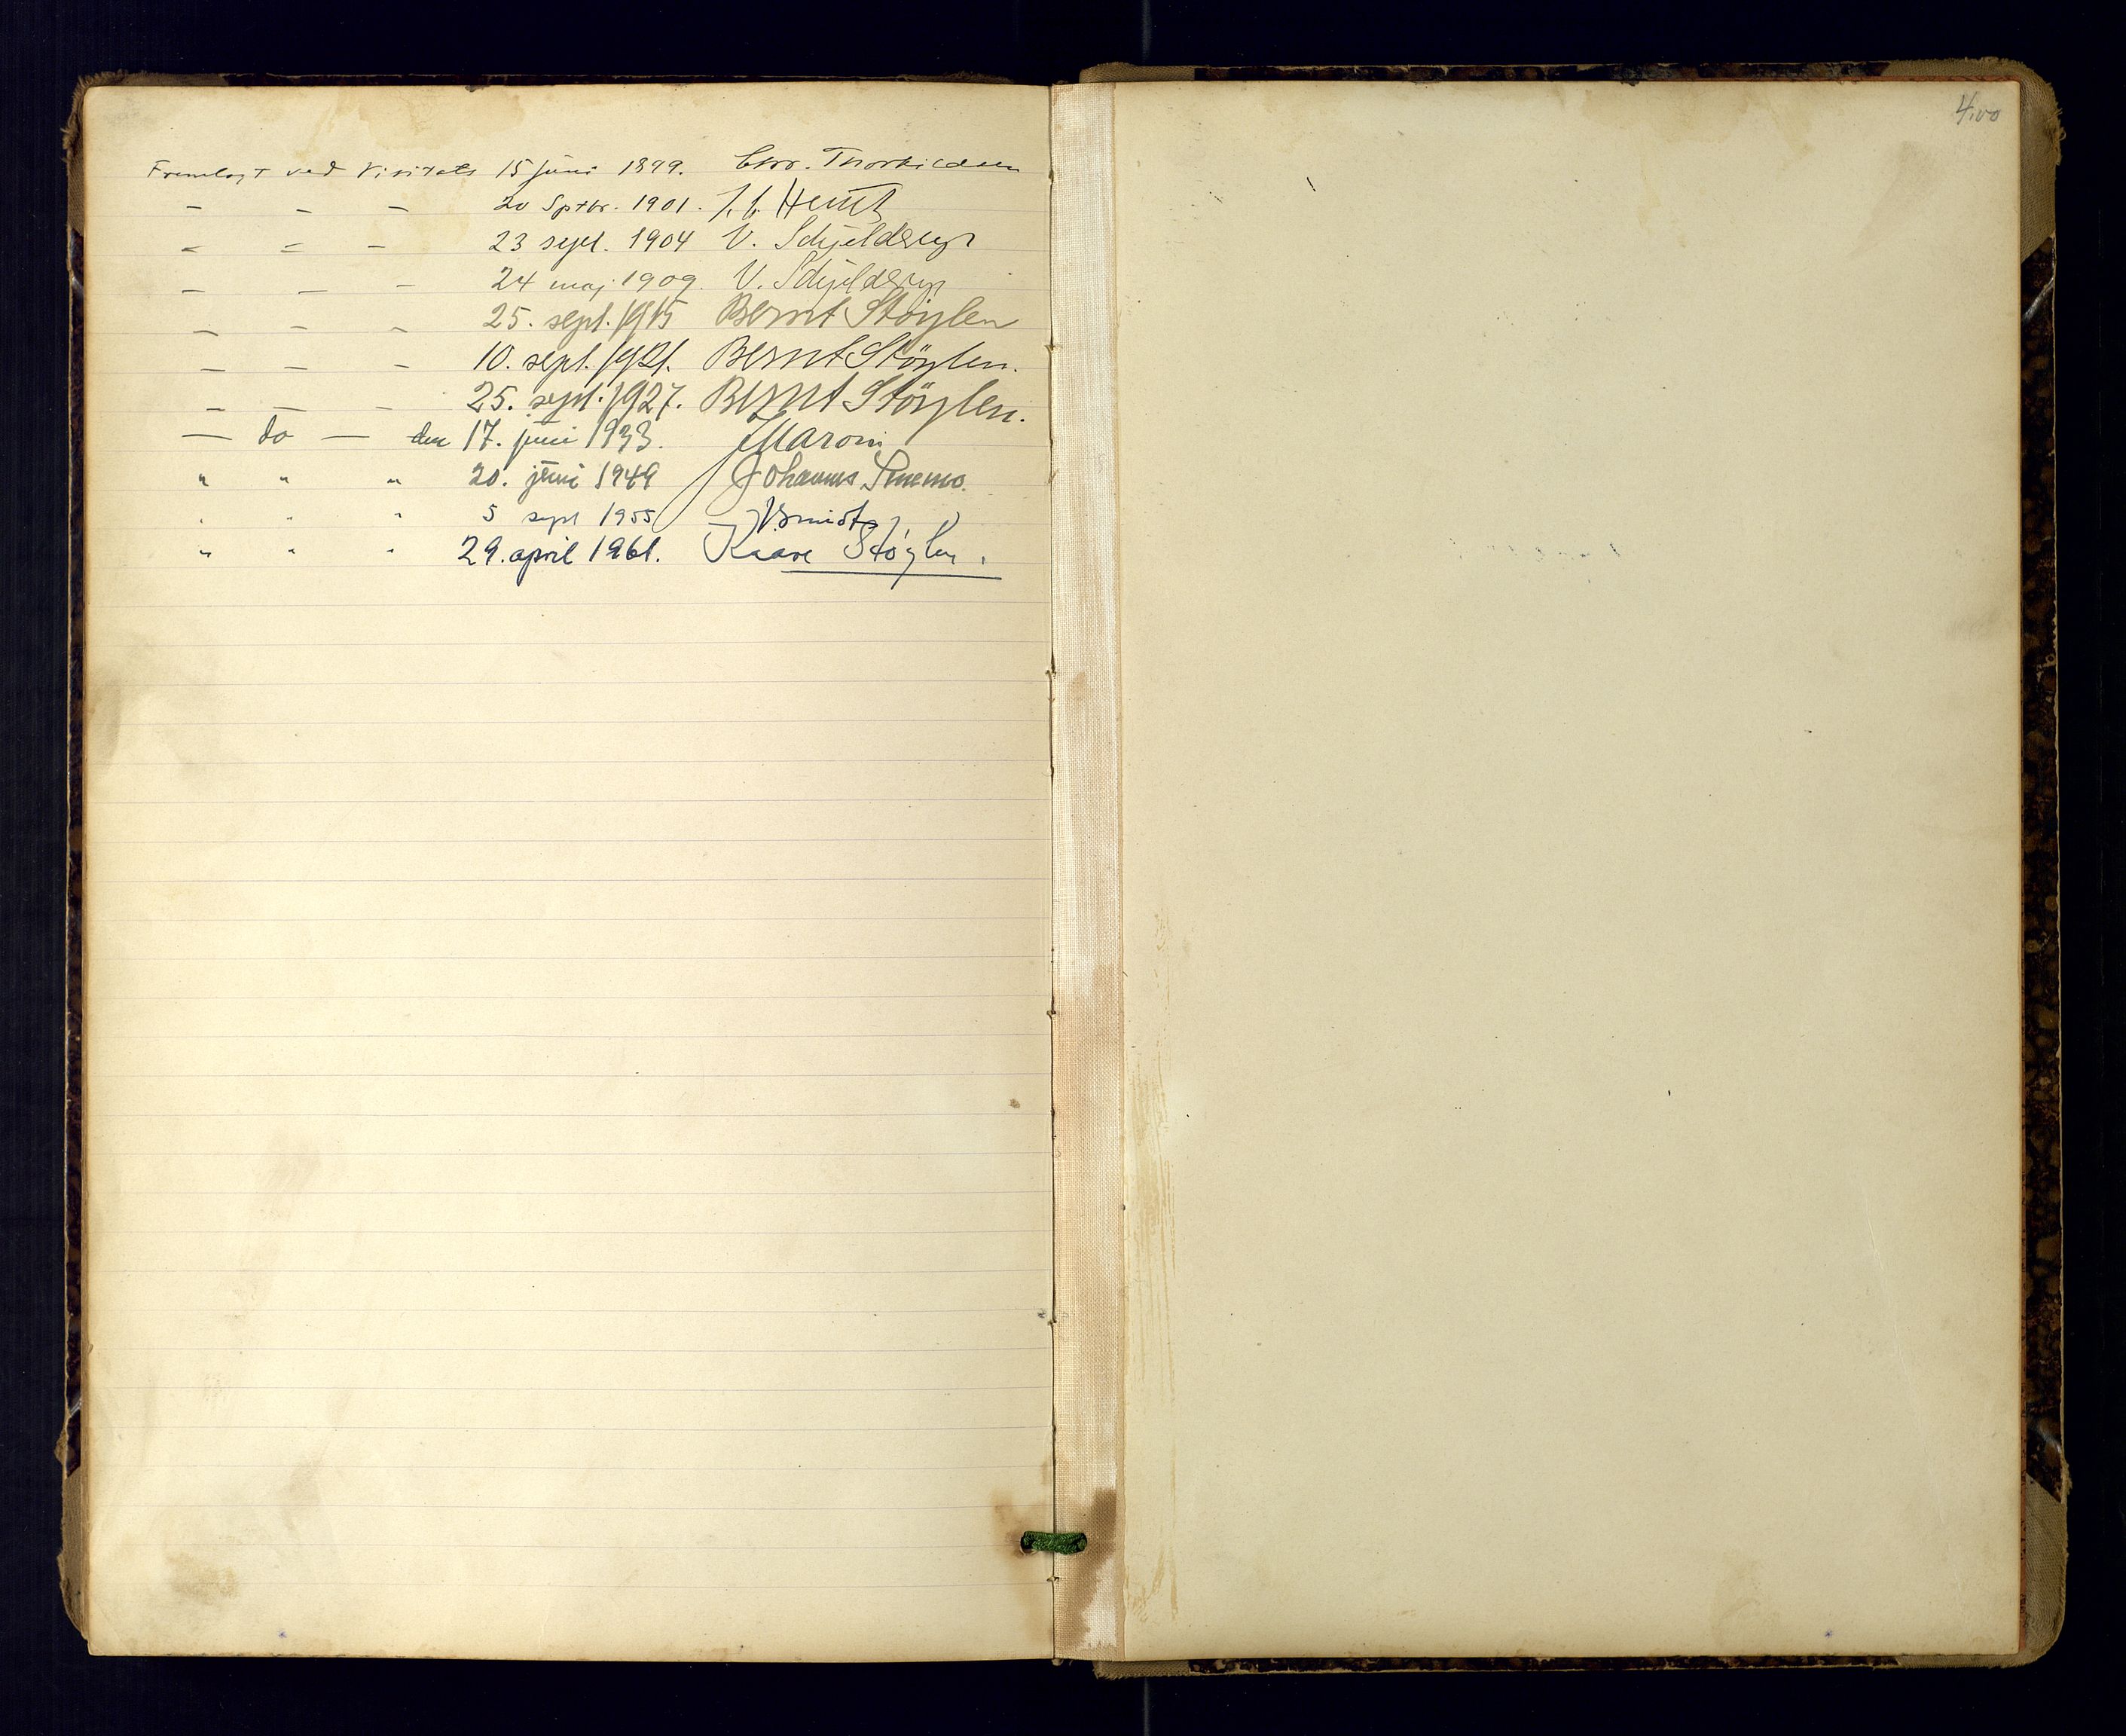 Fremlagt ved Visitats 15 juni 1899. Chr. Thorkildsen
– – – 20 Sptbr. 1901. J. C. Heuch
– – – 23 sept. 1904 V. Schjelderup
– – – 24 maj 1909. V. Schjelderup
– – – 25. sept. 1915 Bernt Støylen
– – – 10. sept. 1921. Bernt Støylen.
– – – 25. sept. 1927. Bernt Støylen.
— do — den 17. juni 1933. JMaroni
" " " 20. juni 1949 Johannes Smemo.
" " " 5 sept 1955 JSmidt
" " " 29. april 1961. Kaare Støylen.
4.00